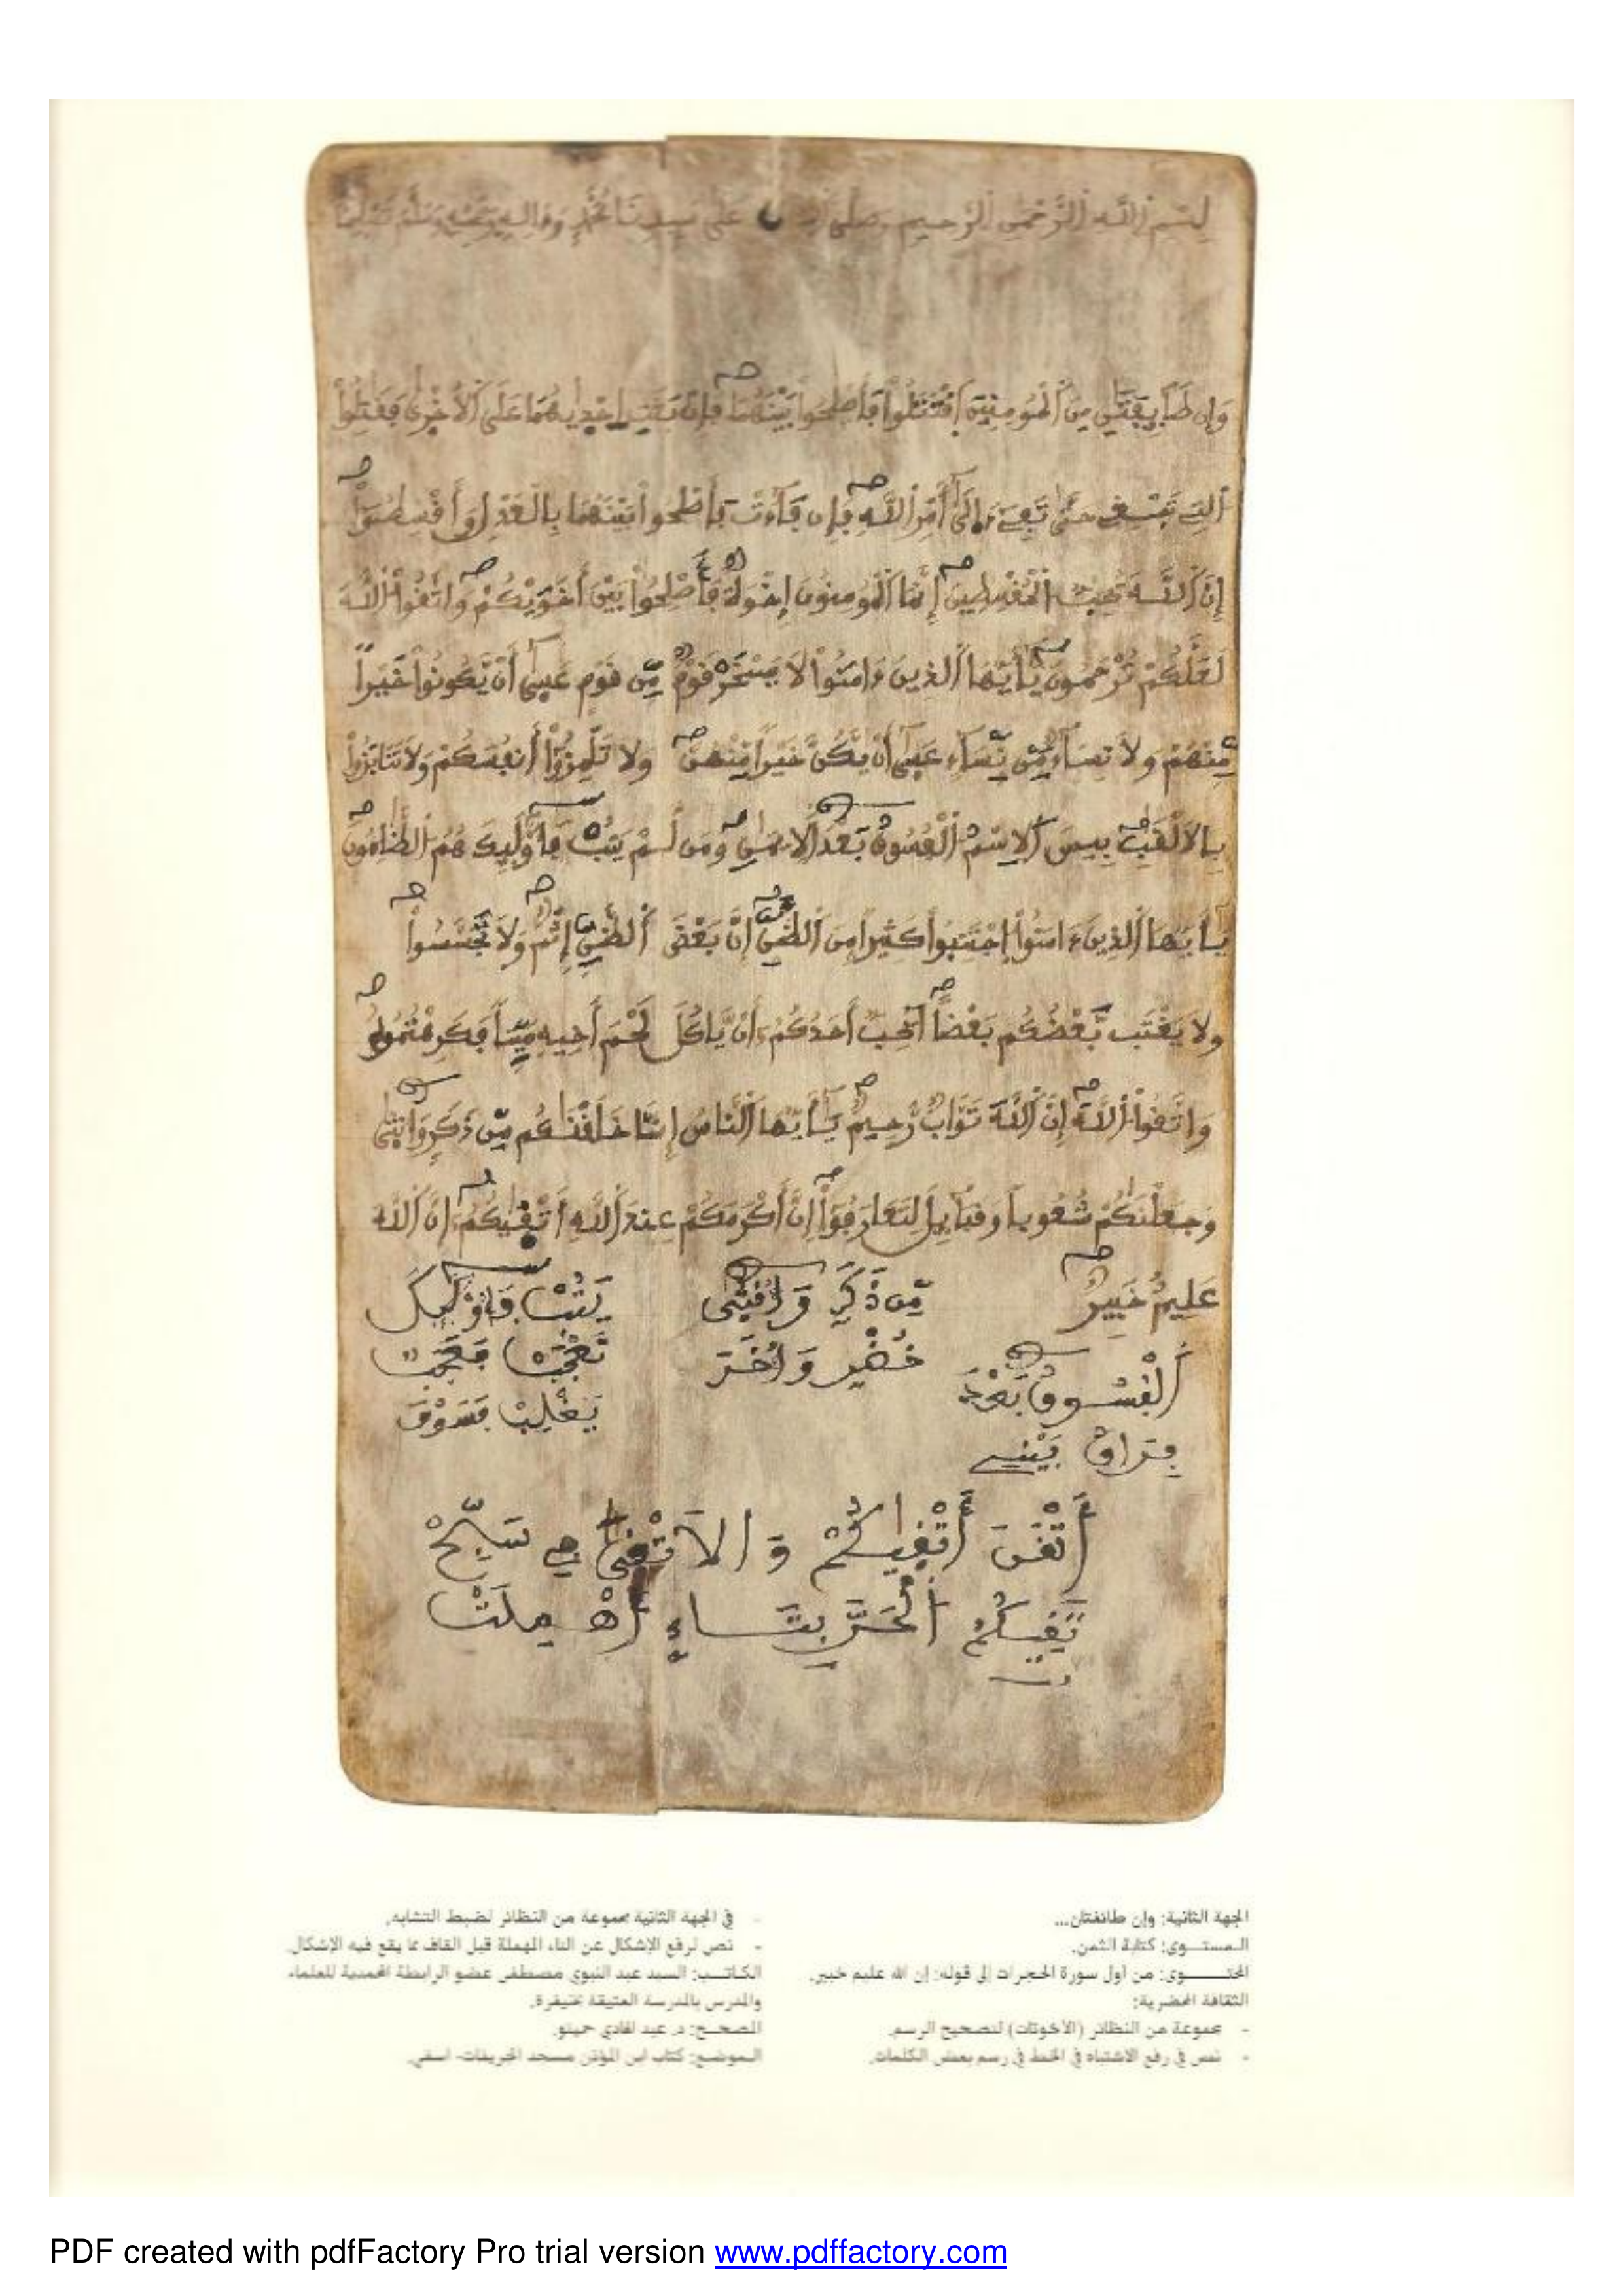 بسم الله الرحمن الرحيم وصلى الله على سيدنا محمد وءاله وصحبه وسلم تسليما
وَإِن طَآئِفَتَٰنِ مِنَ ٱلْمُومِنِينَ ٱقْتَتَلُواْ فَأَصْلِحُواْ بَيْنَهُمَا فَإِنۢ بَغَتِ احْدٜيٰهُمَا عَلَى ٱلْأُخْرٜىٰ فَقَٰتِلُواْ
ٱلتِے تَبْغِے حَتَّىٰ تَفِےٓءَ الَىٰٓ أَمْرِ ٱللَّهِ فَإِن فَآءَتْ فَأَصْلِحُواْ بَيْنَهُمَا بِالْعَدْلِ وَأَقْسِطُوٓاْ
إِنَّ ٱللَّهَ يُحِبُّ ٱلْمُقْسِطِينَ إِنَّمَا ٱلْمُومِنُونَ إِخْوَةٌ فَأَصْلِحُواْ بَيْنَ أَخَوَيْكُمْ وَاتَّقُواْ ٱللَّهَ
لَعَلَّكُمْ تُرْحَمُونَ يَٰٓأَيُّهَا ٱلذِينَ ءَامَنُواْ لَا يَسْخَرْ قَوْمٌ مِّن قَوْمٍ عَسٜىٰٓ أَنْ يَّكُونُواْ خَيْراً
مِّنْهُمْ وَلَا نِسَآءٌ مِّن نِّسَآءٍ عَسٜىٰٓ أَنْ يَّكُنَّ خَيْراً مِّنْهُنَّ وَلَا تَلْمِزُوٓاْ أَنفُسَكُمْ وَلَا تَنَابَزُواْ
بِالَالْقَٰبِ بِيسَ ٱلِاسْمُ ٱلْفُسُوقُ بَعْدَ ٱلِايمَٰنِ وَمَن لَّمْ يَتُبْ فَأُوْلَٰٓئِكَ هُمُ ٱلظَّٰلِمُونَ
يَٰٓأَيُّهَا ٱلذِينَ ءَامَنُواْ اجْتَنِبُواْ كَثِيراً مِّنَ ٱلظَّنِّ إِنَّ بَعْضَ ٱلظَّنِّ إِثْمٌ وَلَا تَجَسَّسُواْ
وَلَا يَغْتَب بَّعْضُكُم بَعْضاً اَيُحِبُّ أَحَدُكُمُ أَنْ يَّاكُلَ لَحْمَ أَخِيهِ مَيِّتاً فَكَرِهْتُمُوهُ
وَاتَّقُواْ ٱللَّهَ إِنَّ ٱللَّهَ تَوَّابٌ رَّحِيمٌ يَٰٓأَيُّهَا ٱلنَّاسُ إِنَّا خَلَقْنَٰكُم مِّن ذَكَرٍ وَأُنثٜىٰ
وَجَعَلْنَٰكُمْ شُعُوباً وَقَبَآئِلَ لِتَعَارَفُوٓاْ إِنَّ أَكْرَمَكُمْ عِندَ ٱللَّهِ أَتْقٜيٰكُمُ إِنَّ ٱللَّهَ
عَلِيمٌ خَبِيرٌ
مِّن ذَكَرٍ وَأُنثٜىٰ
يَتُبْ فَأُوْلَٰٓئِكَ
خُضْرٍ وَأُخَرَ
تَعْجَبْ فَعَجَبٌ
ٱلْفُسُوقُ بَعْدَ
يَغْلِبْ فَسَوْفَ
فِرَاقُ بَيْنِے
أَتْقَنَ أَتْقٜيٰكُمْ وَالَاتْقَى فِي سَبِّحْ
تَقِيكُمُ ٱلْحَرَّ بِتَاءٍ أُهْمِلَتْ
الجهة الثانية: وإن طائفتان...
المستوى: كتابة الثمن.
المحتوى: من أول سورة الحجرات إلى قوله: إن الله عليم خبير.
الثقافة المحضرية:
- مجموعة من النظائر (الأخوتات) لتصحيح الرسم.
- نص في رفع الاشتباه في الخط في رسم بعض الكلمات.
- في الجهة الثانية مجموعة من النظائر لضبط المتشابه.
- نص لرفع الإشكال عن التاء المهملة قبل القاف مما يقع فيه الإشكال.
الكاتب: السيد عبد النبوي مصطفى عضو الرابطة المحمدية للعلماء
والمدرس بالمدرسة العتيقة بخنيفرة.
المصحح: د. عبد الهادي حميتو.
الموضع: كتاب ابن المؤذن مسجد الخريفات- اسفي.
PDF created with pdfFactory Pro trial version www.pdffactory.com